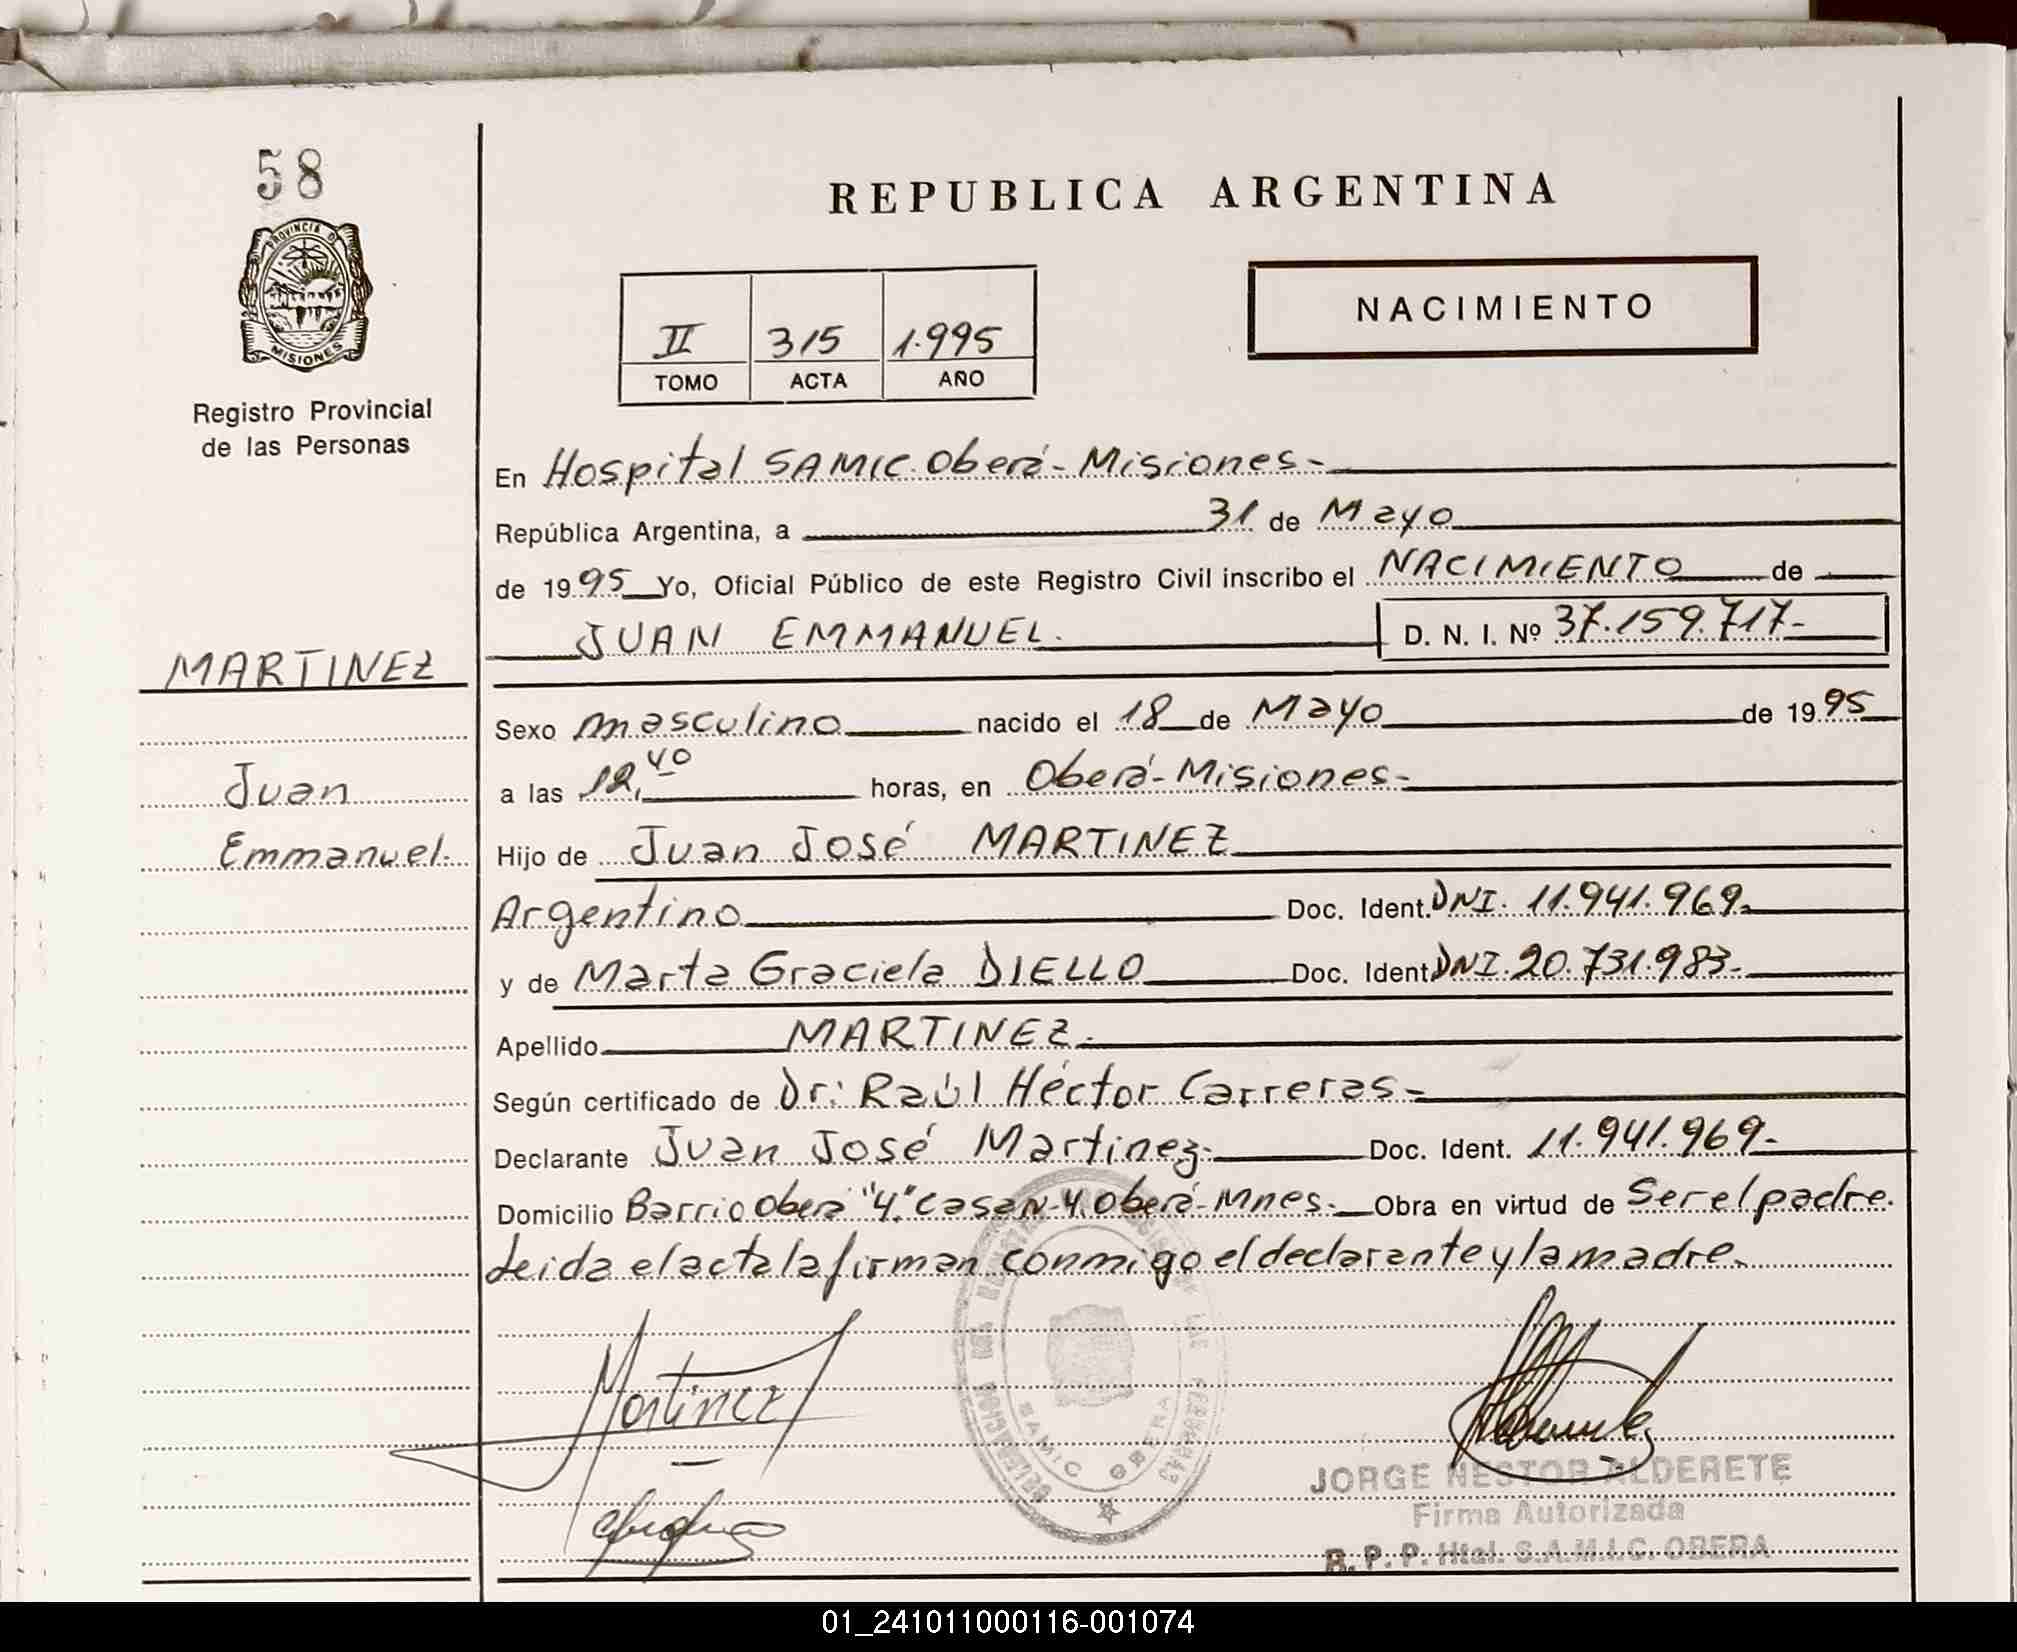 58
PROVINCIA DE
MISIONES
Registro Provincial
de las Personas
REPUBLICA ARGENTINA
II 315 1.995
TOMO ACTA AÑO
NACIMIENTO
En Hospital SAMIC. Oberá - Misiones-
República Argentina, a 31 de Mayo
de 1995 Yo, Oficial Público de este Registro Civil inscribo el NACIMIENTO de
JUAN EMMANUEL. D. N. I. Nº 37.159.717-
MARTINEZ
Juan
Emmanuel.
Sexo masculino nacido el 18 de Mayo de 1995
a las 12,40 horas, en Oberá - Misiones-
Hijo de Juan José MARTINEZ
Argentino Doc. Ident. DNI. 11.941.969-
y de Marta Graciela DIELLO Doc. Ident. DNI. 20.731.983-
Apellido MARTINEZ.-
Según certificado de Dr: Raúl Héctor Carreras-
Declarante Juan José Martinez.- Doc. Ident. 11.941.969-
Domicilio Barrio Oberá "4." Casa N- 4. Oberá - Mnes.- Obra en virtud de Ser el padre.
Leida el acta la firman conmigo el declarante y la madre.
Martinez
SAMIC OBERA
JORGE NESTOR ALDERETE
Firma Autorizada
R. P. P. Htal. S.A.M.I.C. OBERA
01_241011000116-001074